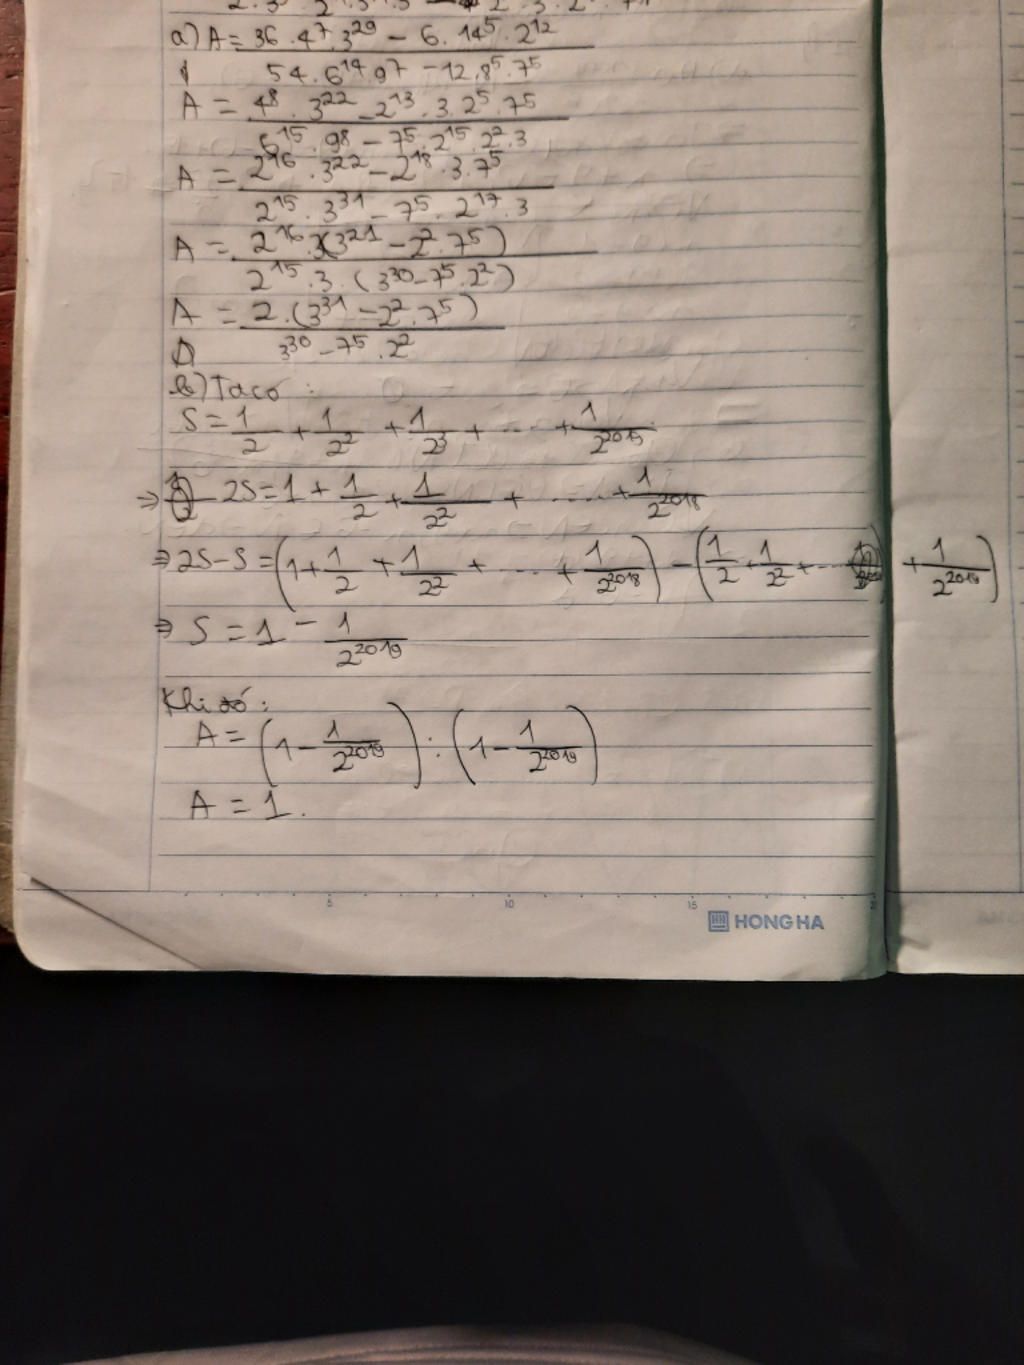 a) A = 36 . 4^7 . 3^29 - 6 . 14^5 . 2^12
54 . 6^14 . 9^7 - 12 . 8^5 . 7^5
A = 4^8 . 3^22 - 2^13 . 3 . 2^5 . 7^5
6^15 . 9^8 - 7^5 . 2^15 . 2^2 . 3
A = 2^16 . 3^22 - 2^18 . 3 . 7^5
2^15 . 3^31 - 7^5 . 2^17 . 3
A = 2^16 . 3(3^21 - 2^2 . 7^5)
2^15 . 3 . (3^30 - 7^5 . 2^2)
A = 2 . (3^31 - 2^2 . 7^5)
3^30 - 7^5 . 2^2
b) Ta có :
S = 1/2 + 1/2^2 + 1/2^3 + ... + 1/2^2019
⇒ 2S = 1 + 1/2 + 1/2^2 + ..... + 1/2^2018
⇒ 2S - S = (1 + 1/2 + 1/2^2 + ... + 1/2^2018) - (1/2 + 1/2^2 + ... + 1/2^2019)
⇒ S = 1 - 1/2^2019
Khi đó :
A = (1 - 1/2^2019) : (1 - 1/2^2019)
A = 1.
5 10 15
HONG HA